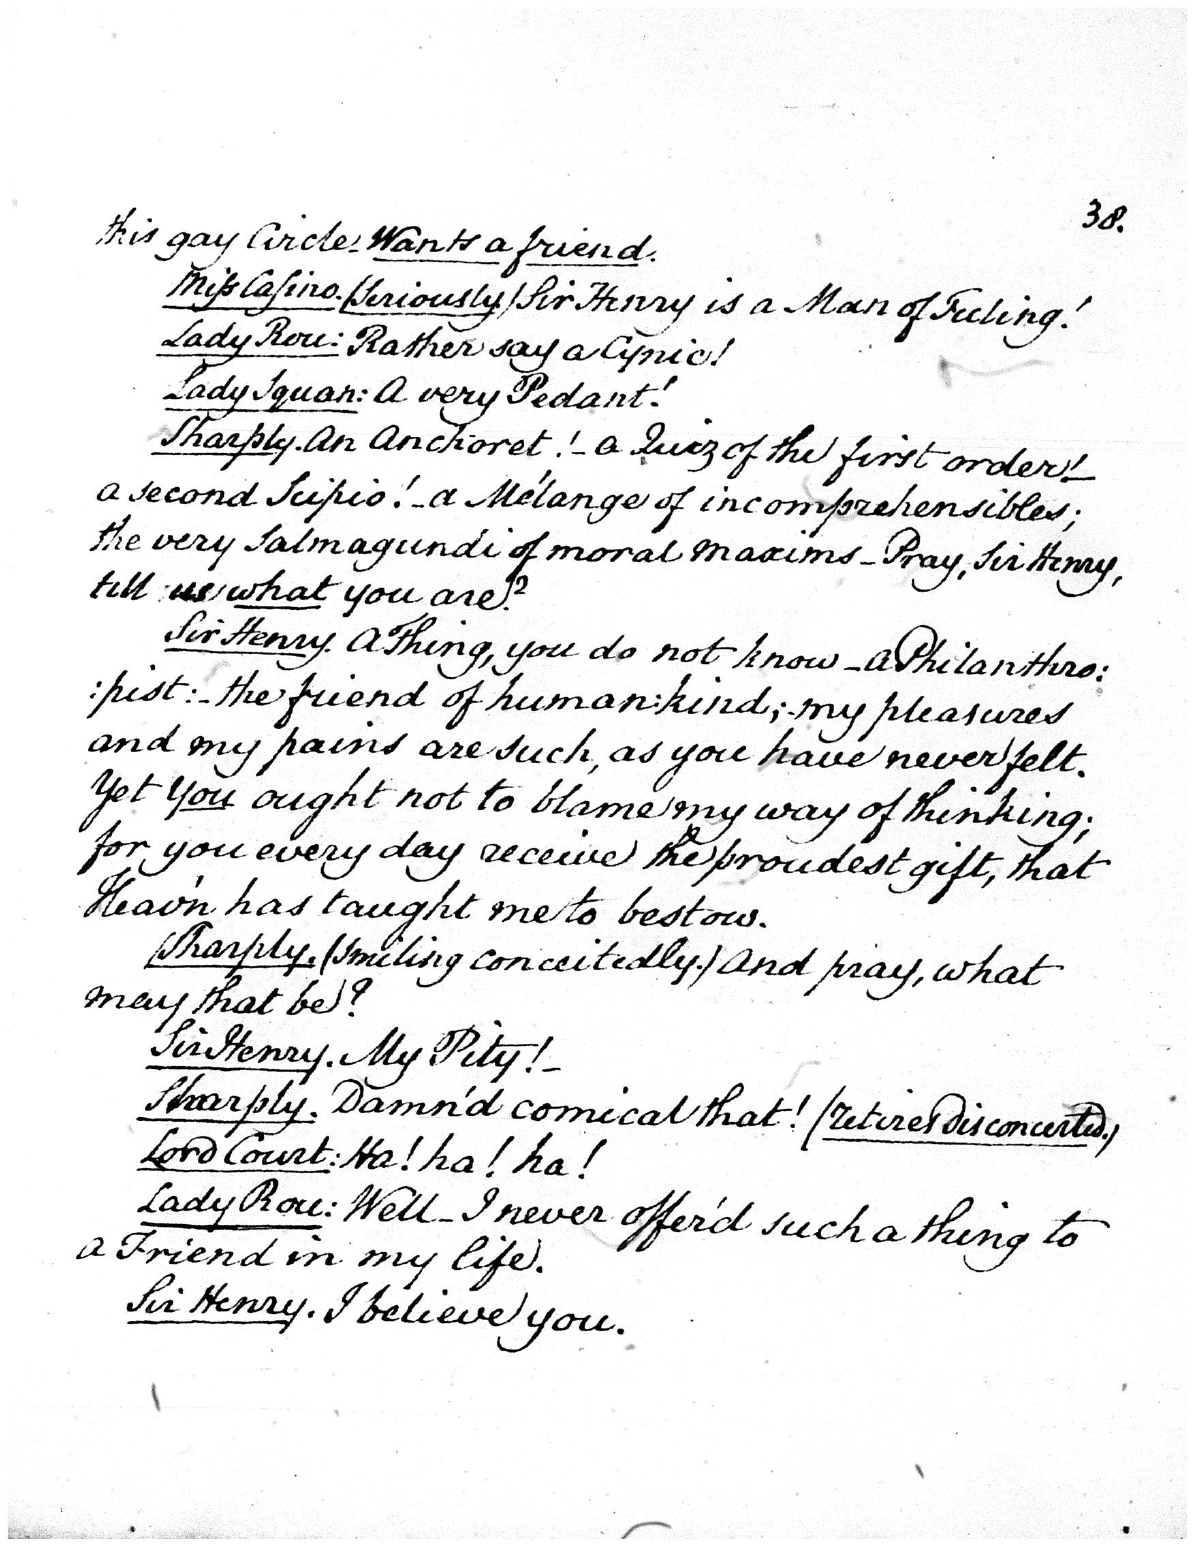 38.
this gay Circle - Wants a friend.
Miſs Casino. (Seriously) Sir Henry is a Man of Feeling!
Lady Rou: Rather say a Cynic!
Lady Squan: A very Pedant!
Sharply. An Anchoret! - a Quiz of the first order! -
a second Scipio! - a Mélange of incomprehensibles;
the very Salmagundi of moral maxims - Pray, Sir Henry,
tell us what you are?
Sir Henry. A Thing, you do not know - a Philanthro:
:pist: - the friend of human:kind; - my pleasures
and my pains are such, as you have never felt.
Yet You ought not to blame my way of thinking;
for you every day receive the proudest gift, that
Heav'n has taught me to bestow.
Sharply. (Smiling conceitedly.) And pray, what
may that be?
Sir Henry. My Pity! -
Sharply. Damn'd comical that! (retires disconcerted.)
Lord Court: Ha! ha! ha!
Lady Rou: Well - I never offer'd such a thing to
a Friend in my life.
Sir Henry. I believe you.